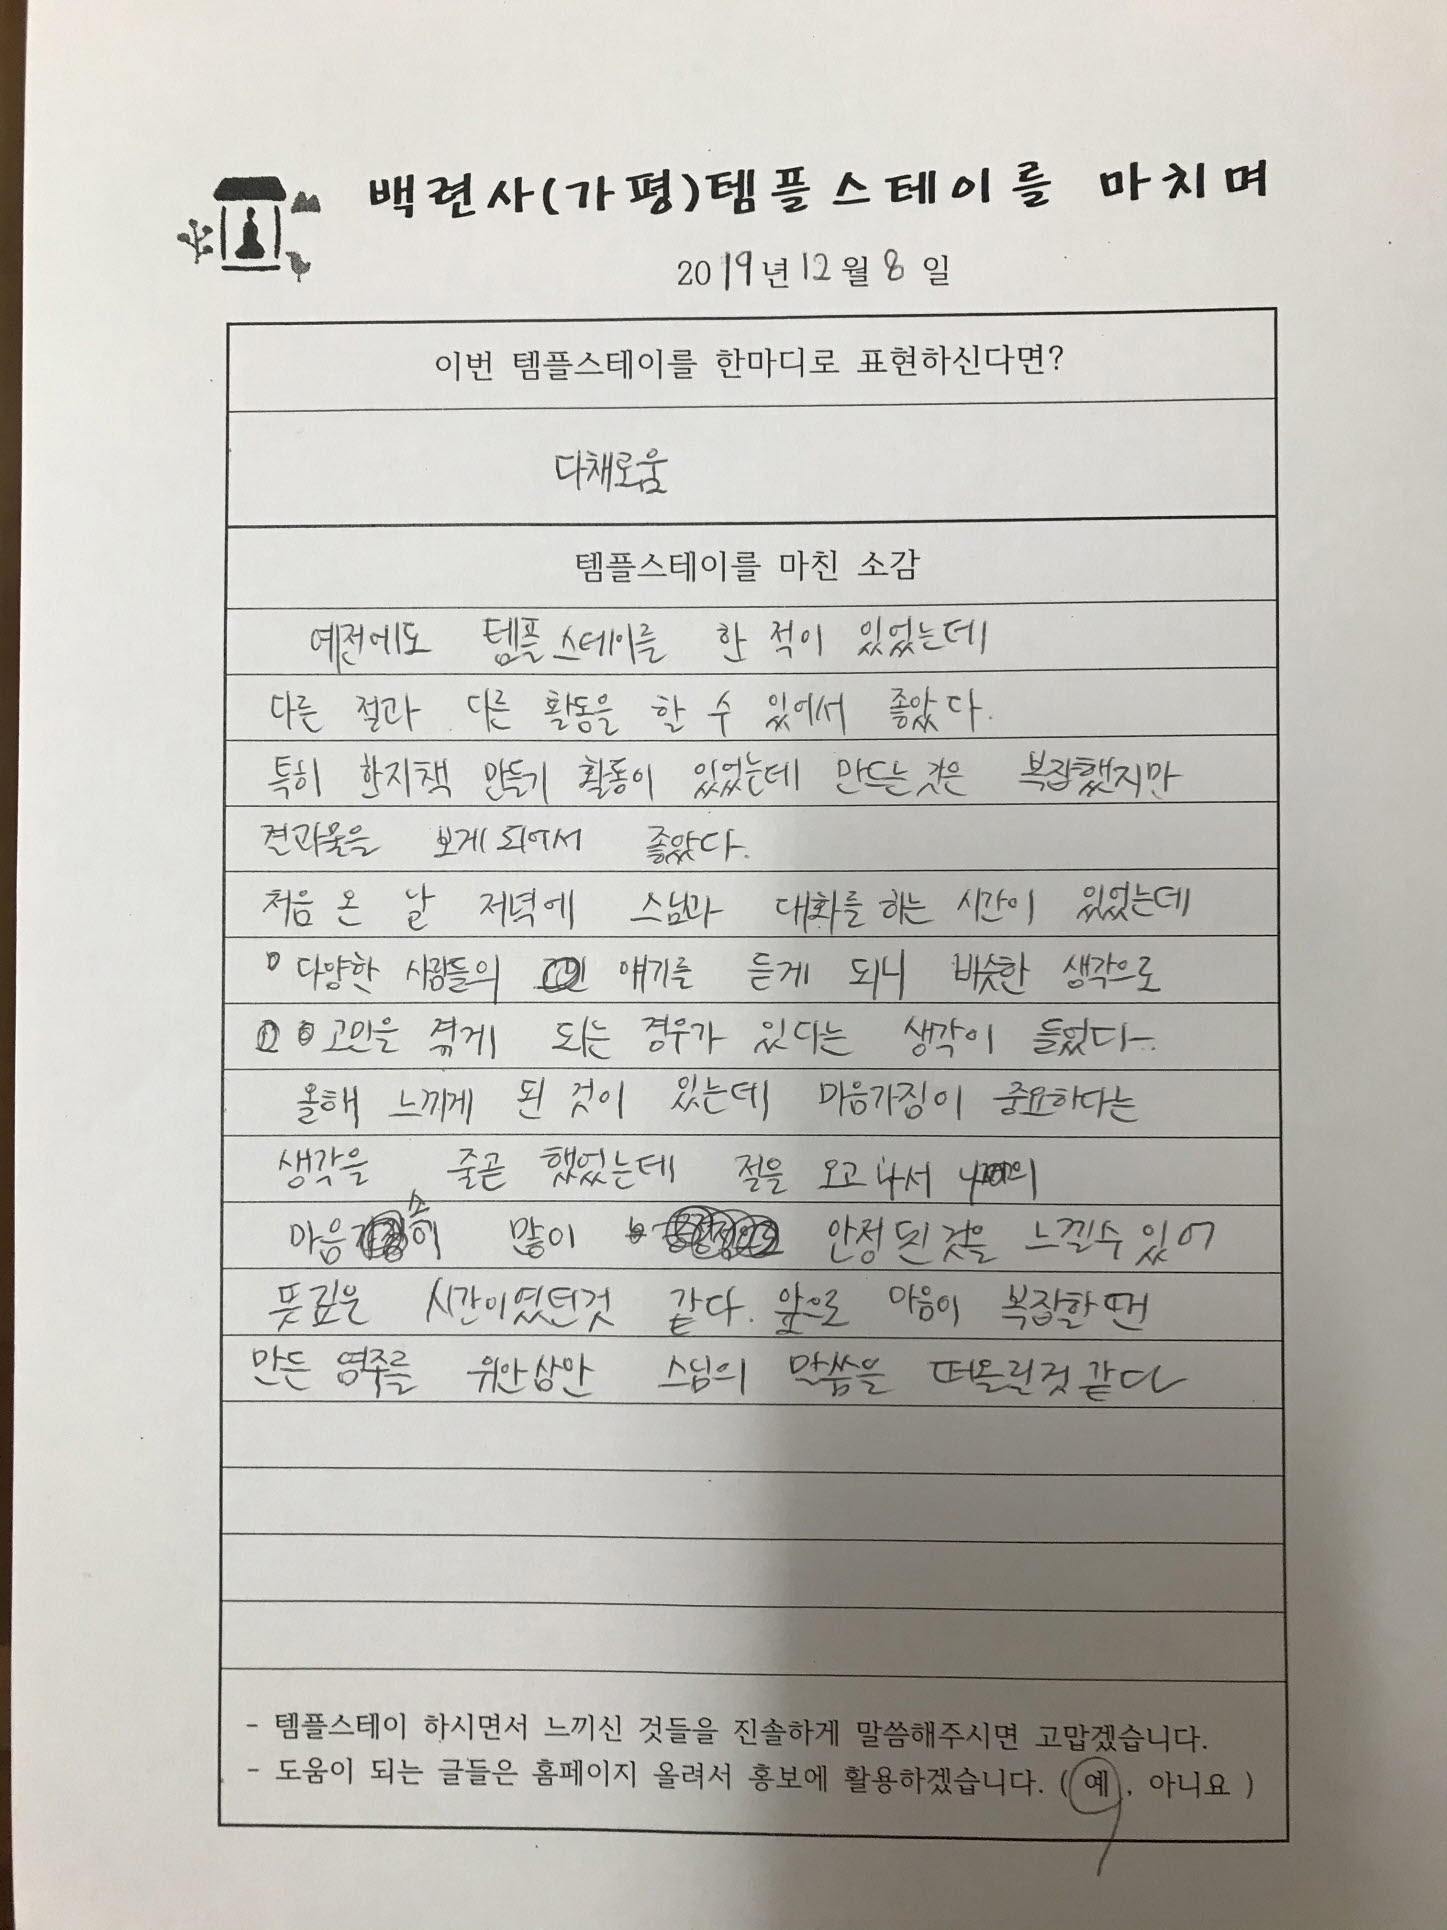 백련사(가평)템플스테이를 마치며
2019년 12월 8일
이번 템플스테이를 한마디로 표현하신다면?
다채로움
템플스테이를 마친 소감
예전에도 템플스테이를 한 적이 있었는데
다른 절과 다른 활동을 할 수 있어서 좋았다.
특히 한지책 만들기 활동이 있었는데 만드는 것은 복잡했지만
결과물을 보게 되어서 좋았다.
처음 온 날 저녁에 스님과 대화를 하는 시간이 있었는데
다양한 사람들의 얘기를 듣게 되니 비슷한 생각으로
고민을 겪게 되는 경우가 있다는 생각이 들었다.
올해 느끼게 된 것이 있는데 마음가짐이 중요하다는
생각을 줄곧 했었는데 절을 오고 나서
마음 많이 안정 된 것을 느낄수 있어
뜻깊은 시간이였던것 같다. 앞으로 마음이 복잡할 땐
만든 염주를 위안삼아 스님의 말씀을 떠올릴것 같다
- 템플스테이 하시면서 느끼신 것들을 진솔하게 말씀해주시면 고맙겠습니다.
- 도움이 되는 글들은 홈페이지 올려서 홍보에 활용하겠습니다. ( 예 , 아니요 )